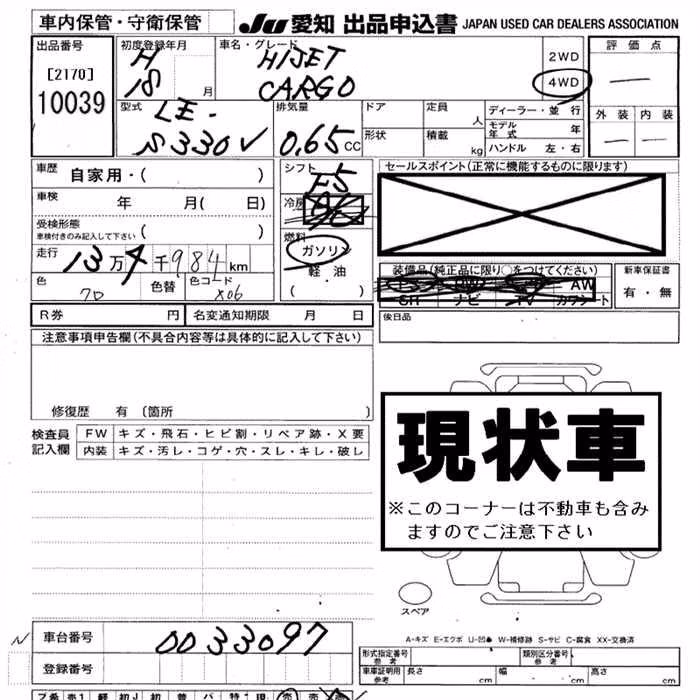 車内保管・守衛保管
JU 愛知 出品申込書 JAPAN USED CAR DEALERS ASSOCIATION
出品番号
[2170]
10039
初度登録年月
H
18 月
車名・グレード
HIJET
CARGO
2WD
4WD
評価点
外装 内装
型式
LE-
S330V
排気量
0.65 CC
ドア
定員 人
形状
積載 kg
ディーラー・並行
モデル年式 年
ハンドル 左・右
車歴
自家用・( )
車検 年 月( 日)
受検形態
車検付きのみ記入して下さい ( )
走行
13万4千984km
色
色替
色コード
X06
シフト
F5
冷房
燃料
ガソリン
軽油
( )
セールスポイント(正常に機能するものに限ります)
装備品(純正品に限り○をつけてください)
AW
SR ナビ TV カワシート
新車保証書
有・無
R券 円
名変通知期限 月 日
後日品
注意事項申告欄(不具合内容等は具体的に記入して下さい)
修復歴 有 〔箇所 〕
検査員
記入欄
FW キズ・飛石・ヒビ割・リペア跡・X要
内装 キズ・汚レ・コゲ・穴・スレ・キレ・破レ
現状車
※このコーナーは不動車も含み
ますのでご注意下さい
スペア
A-キズ E-エクボ U-凹 W-補修跡 S-サビ C-腐食 XX-交換済
N
車台番号
0033097
登録番号
形式指定番号
参考
類別区分番号
参考
車庫証明用
参考
長さ cm
幅 cm
高さ cm